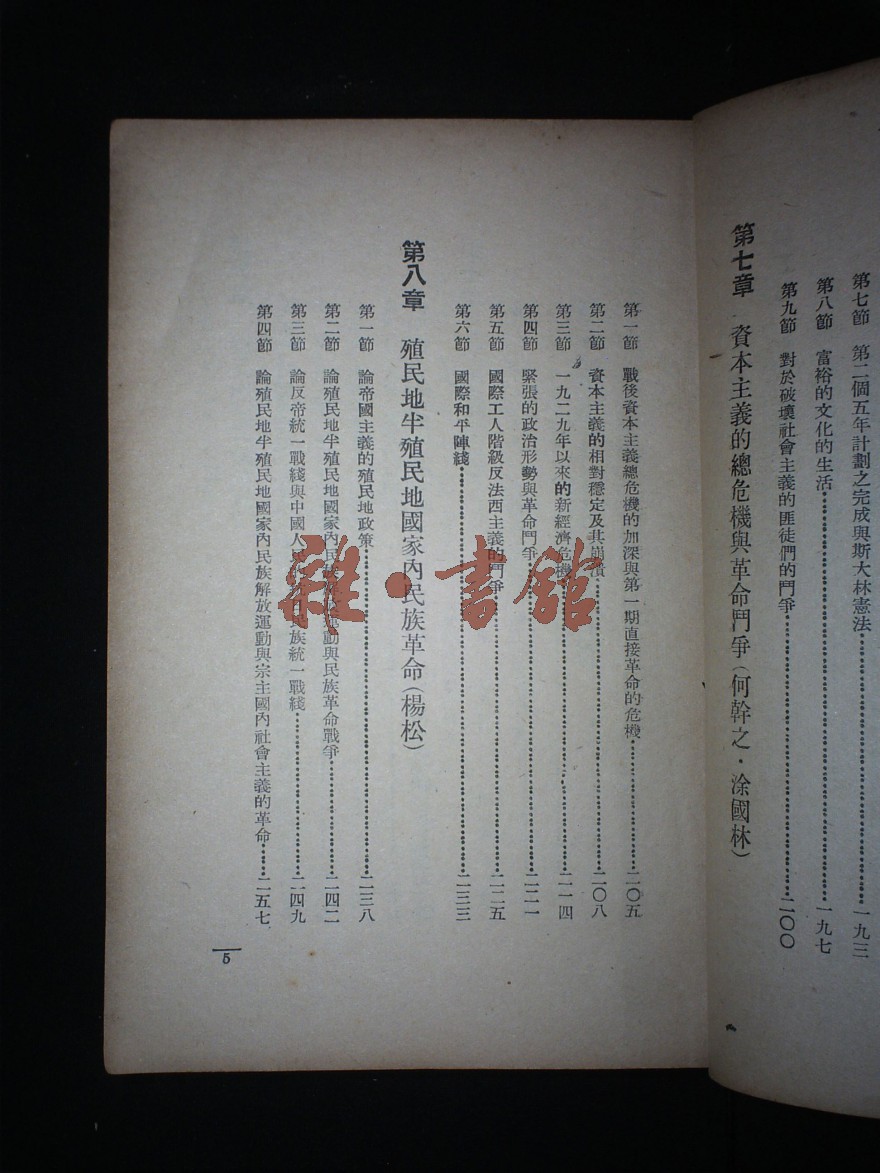 第七節 第二個五年計劃之完成與斯大林憲法………一九三
第八節 富裕的文化的生活………一九七
第九節 對於破壞社會主義的匪徒們的鬥爭………二〇〇
第七章 資本主義的總危機與革命鬥爭（何幹之·涂國林）
第一節 戰後資本主義總危機的加深與第一期直接革命的危機………二〇五
第二節 資本主義的相對穩定及其崩潰………二〇八
第三節 一九二九年以來的新經濟危機………二一四
第四節 緊張的政治形勢與革命鬥爭………二二一
第五節 國際工人階級反法西主義的鬥爭………二二五
第六節 國際和平陣綫………二三三
第八章 殖民地半殖民地國家內民族革命（楊松）
第一節 論帝國主義的殖民地政策………二三八
第二節 論殖民地半殖民地國家內民族解放運動與民族革命戰爭………二四二
第三節 論反帝統一戰綫與中國人民的抗日民族統一戰綫………二四九
第四節 論殖民地半殖民地國家內民族解放運動與宗主國內社會主義的革命………二五七
5
雜·書館